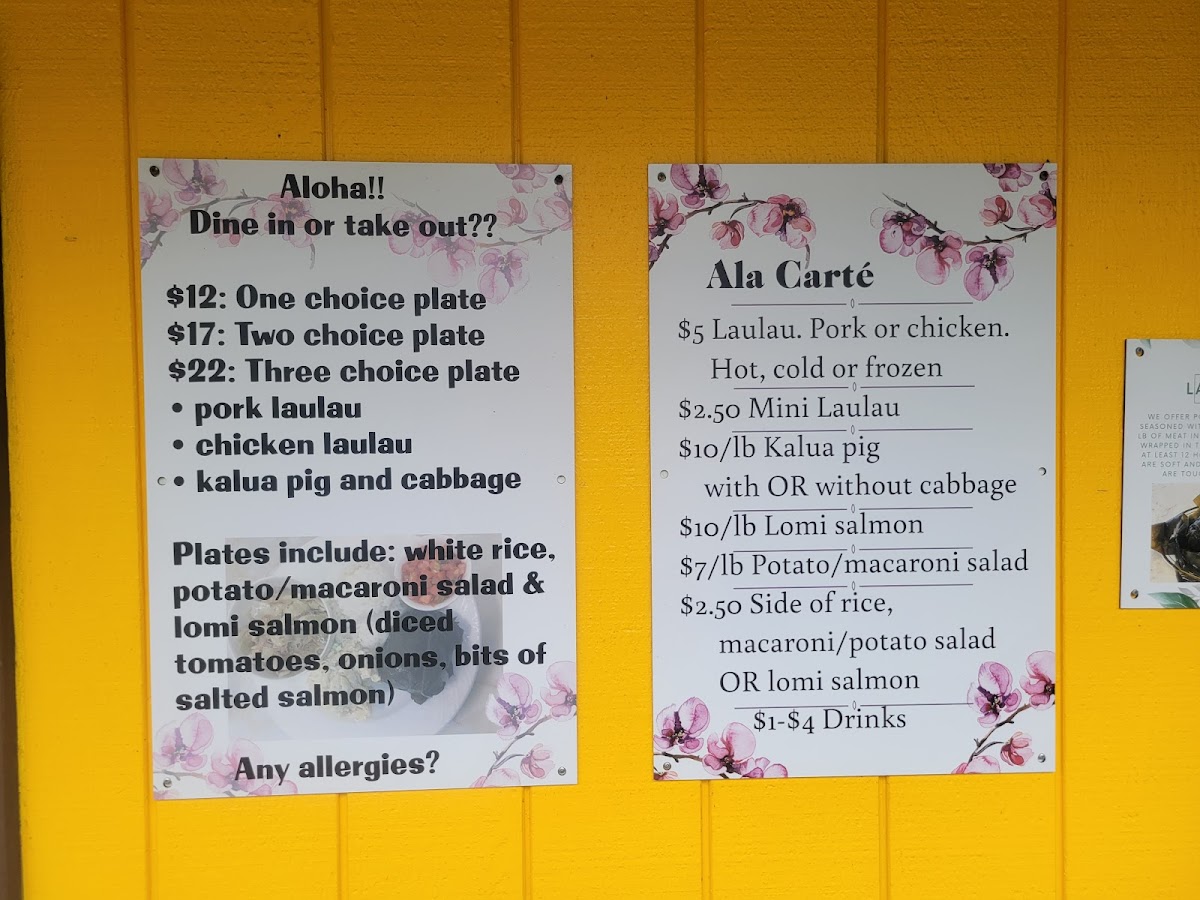 Aloha!!
Dine in or take out??
$12: One choice plate
$17: Two choice plate
$22: Three choice plate
• pork laulau
• chicken laulau
• kalua pig and cabbage
Plates include: white rice,
potato/macaroni salad &
lomi salmon (diced
tomatoes, onions, bits of
salted salmon)
Any allergies?
Ala Carté
$5 Laulau. Pork or chicken.
Hot, cold or frozen
$2.50 Mini Laulau
$10/lb Kalua pig
with OR without cabbage
$10/lb Lomi salmon
$7/lb Potato/macaroni salad
$2.50 Side of rice,
macaroni/potato salad
OR lomi salmon
$1-$4 Drinks
WE OFFER
SEASONED
LB OF MEAT IN
WRAPPED IN
AT LEAST 12
ARE SOFT AND
ARE